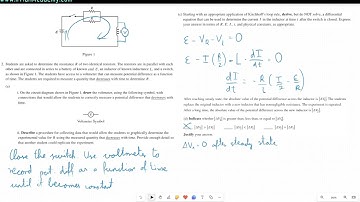 Figure 1
2. Students are asked to determine the resistance R of two identical resistors. The resistors are in parallel with each
other and are connected in series to a battery of known emf ε, an inductor of known inductance L, and a switch,
as shown in Figure 1. The students have access to a voltmeter that can measure potential difference as a function
of time. The students are required to measure a quantity that decreases with time to determine R.
(a)
i. On the circuit diagram shown in Figure 1, draw the voltmeter, using the following symbol, with
connections that would allow the students to correctly measure a potential difference that decreases with
time.
Voltmeter Symbol
ii. Describe a procedure for collecting data that would allow the students to graphically determine the
experimental value for R using the measured quantity that decreases with time. Provide enough detail so
that another student could replicate the experiment.
Close the switch Use voltmeter to
record pot diff as a function of time
until it becomes constant
(c) Starting with an appropriate application of Kirchhoff's loop rule, derive, but do NOT solve, a differential
equation that can be used to determine the current I in the inductor at time t after the switch is closed. Express
your answer in terms of R, ε, L, I, t, and physical constants, as appropriate.
ε - V₂ - V₁ = 0
ε - I (R/2) - L dI/dt = 0
After reaching steady state, the absolute value of the potential difference across the inductor is
replace the original inductor with a new inductor that has nonnegligible resistance. The experiment is repeated.
After a long time, the absolute value of the potential difference across the new inductor is
Justify your answer.
ΔV₁ = 0 after steady state